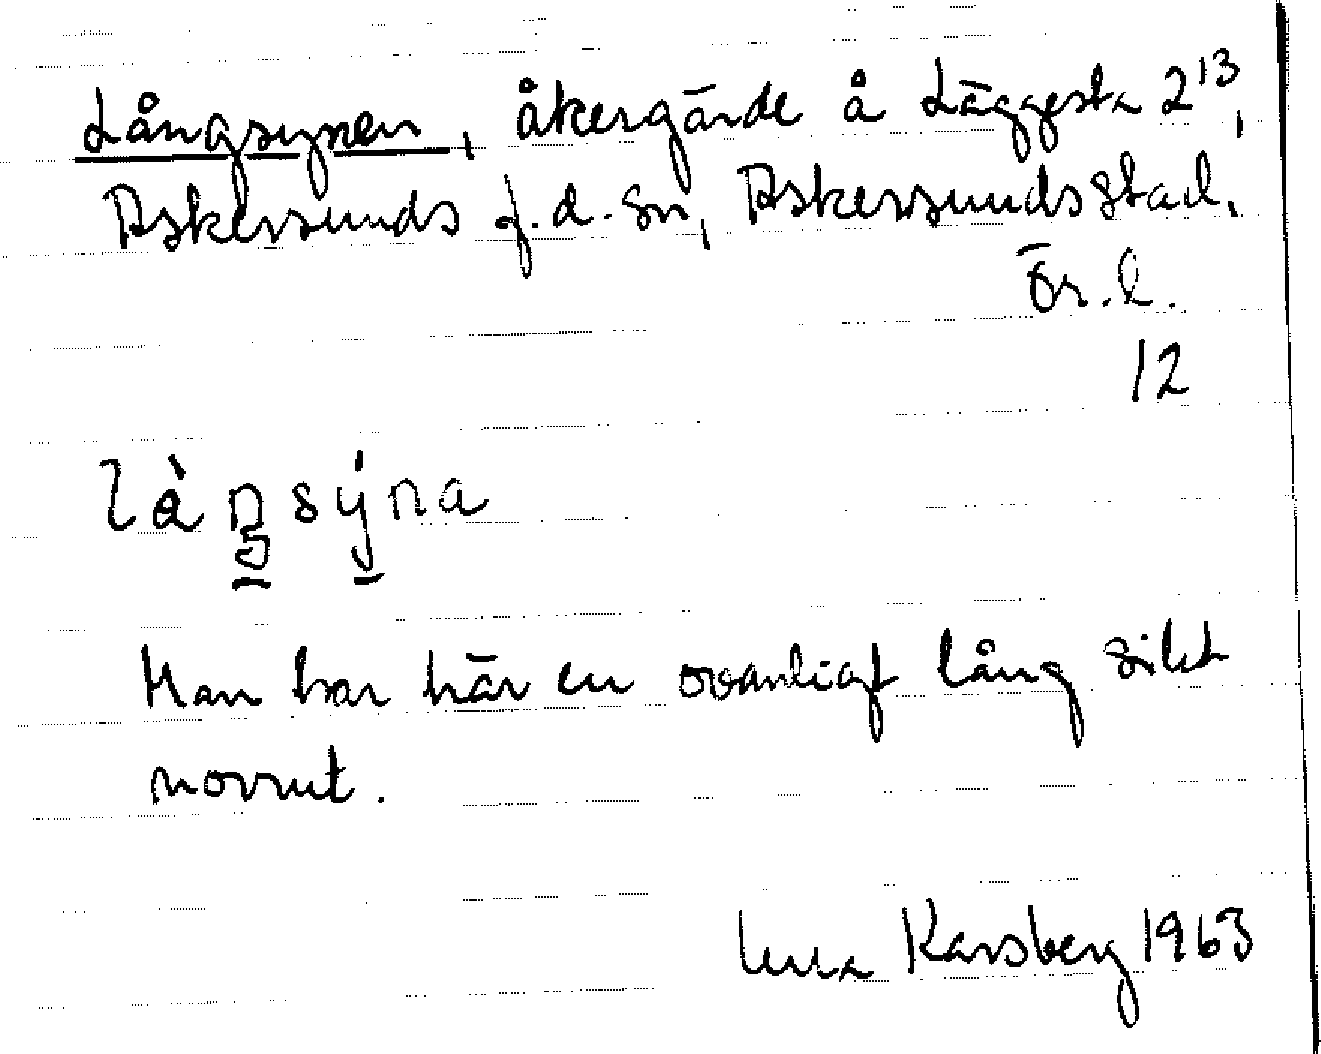 Långsynen, åkergärde å Läggesta 2¹³,
Askersunds f.d. sn, Askersunds stad.
Ör. l.
12
Man har här en ovanligt lång sikt
norrut.
Karsberg 1963